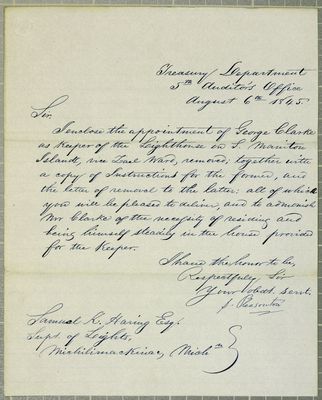 Treasury Department
5th Auditor's Office
August 6th 1845.
Sir,
I enclose the appointment of George Clarke
as Keeper of the Lighthouse on S. Manitou
Island, vice Ward, removed; together with
a copy of Instructions for the former, and
the letter of removal to the latter: all of which
you will be pleased to deliver, and to admonish
Mr Clarke of the necessity of residing and
being himself steadily in the house provided
for the Keeper.
I have the honor to be,
Respectfully, Sir
Your obdt. servt.
S. Pleasonton
Samuel K. Haring Esq.
Supt. of Lights,
Michilimackinac, Mich